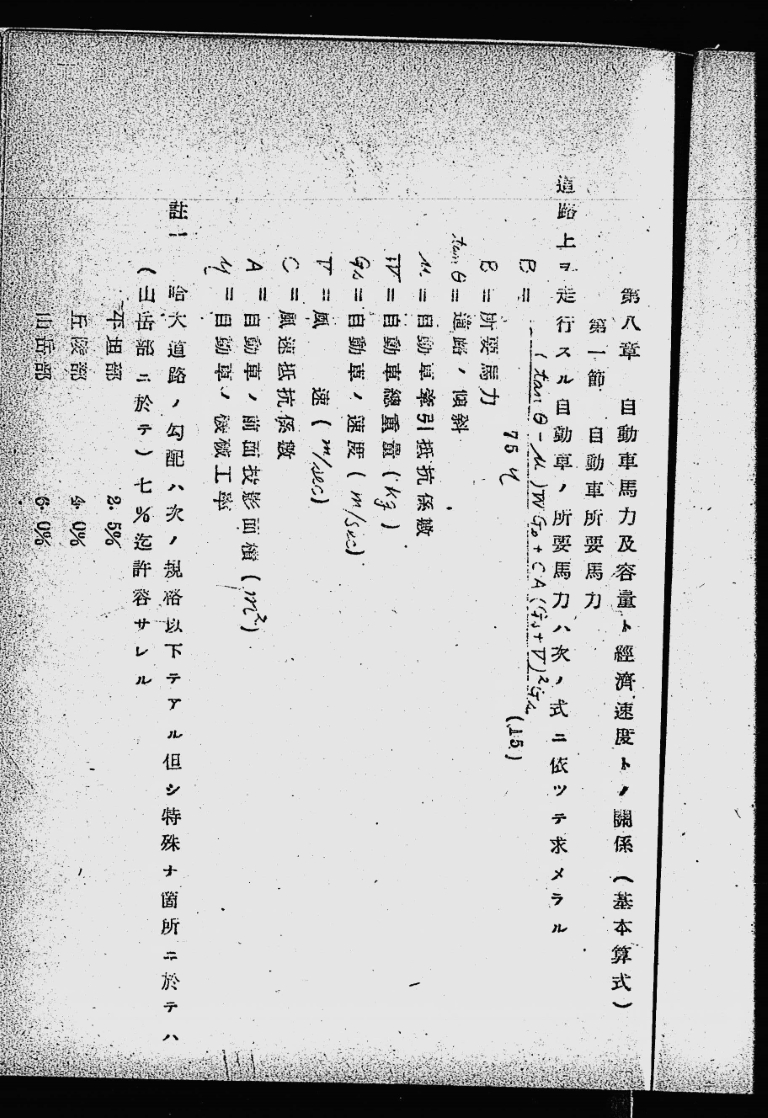 第八章　自動車馬力及容量ト經濟速度トノ關係（基本算式）
第一節　自動車所要馬力
道路上ヲ走行スル自動車ノ所要馬力ハ次ノ式ニ依ツテ求メラル
B = (tan θ - μ) W Gs + CA (Gs + V)² Gs
75 η
(15)
B = 所要馬力
tan θ = 道路ノ傾斜
μ = 自動車牽引抵抗係數
W = 自動車總重量 (kg)
Gs = 自動車ノ速度 (m/sec)
V = 風　速 (m/sec)
C = 風速抵抗係數
A = 自動車ノ前面投影面積 (m²)
η = 自動車ノ機械工率
註一　哈大道路ノ勾配ハ次ノ規格以下テアル但シ特殊ナ箇所ニ於テハ
（山岳部ニ於テ）七％迄許容サレル
平坦部　2.5%
丘陵部　4.0%
山岳部　6.0%